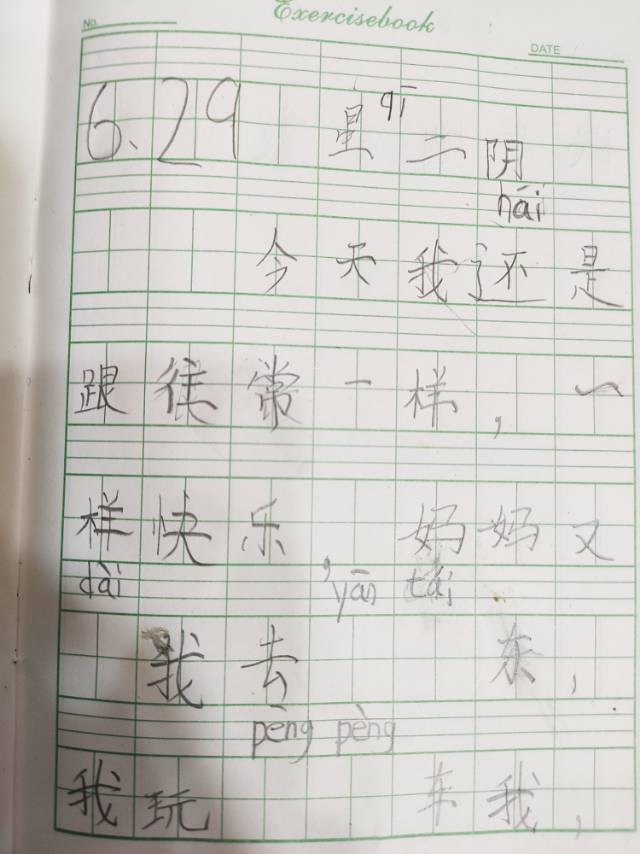 Exercisebook
No.
DATE
6.29 星qī二阴
hái
今天我还是
跟往常一样，一
样快乐，妈妈又
dài yān tái
我去 东，
pēng pèng
我玩 车我，